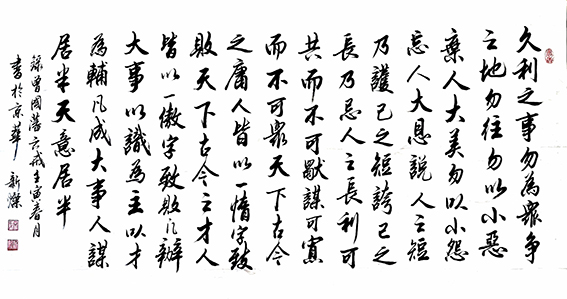 久利之事勿為眾爭
之地勿往勿以小惡
棄人大美勿以小怨
忘人大恩說人之短
乃護己之短誇己之
長乃忌人之長利可
共而不可獨謀可寡
而不可眾天下古今
之庸人皆以一惰字致
敗天下古今之才人
皆以一傲字致敗凡辦
大事以識為主以才
為輔凡成大事人謀
居半天意居半
錄曾國藩六戒壬寅春月
書於京華 新燦